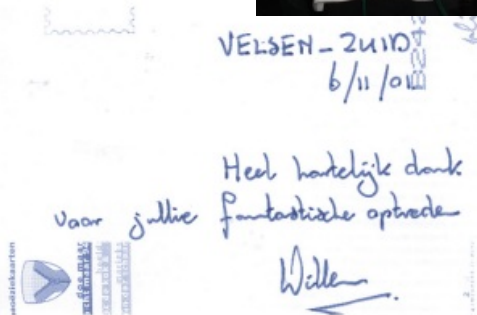 VELSEN-ZUID
6/11/01
Heel hartelijk dank
voor jullie fantastische optreden
Willem
B242